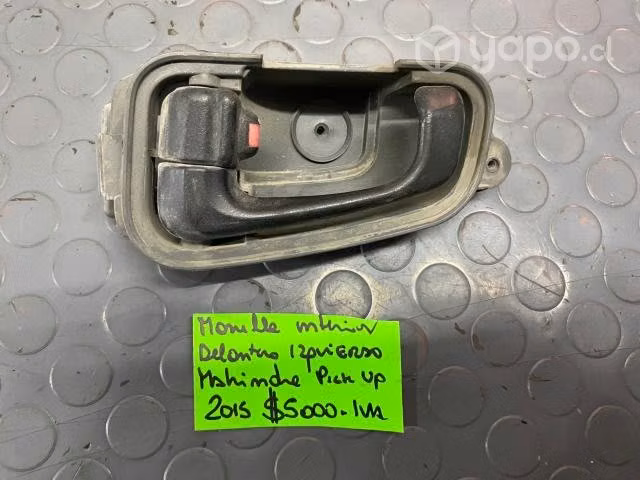 yapo.cl
Manilla interior
Delantero IzquiERDO
Mahindra Pick up
2015 $5000.-IVA